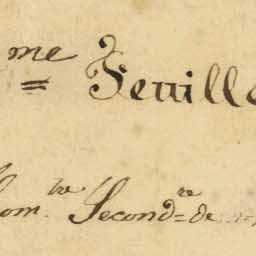 me = Feuille
Com.re Second.re de